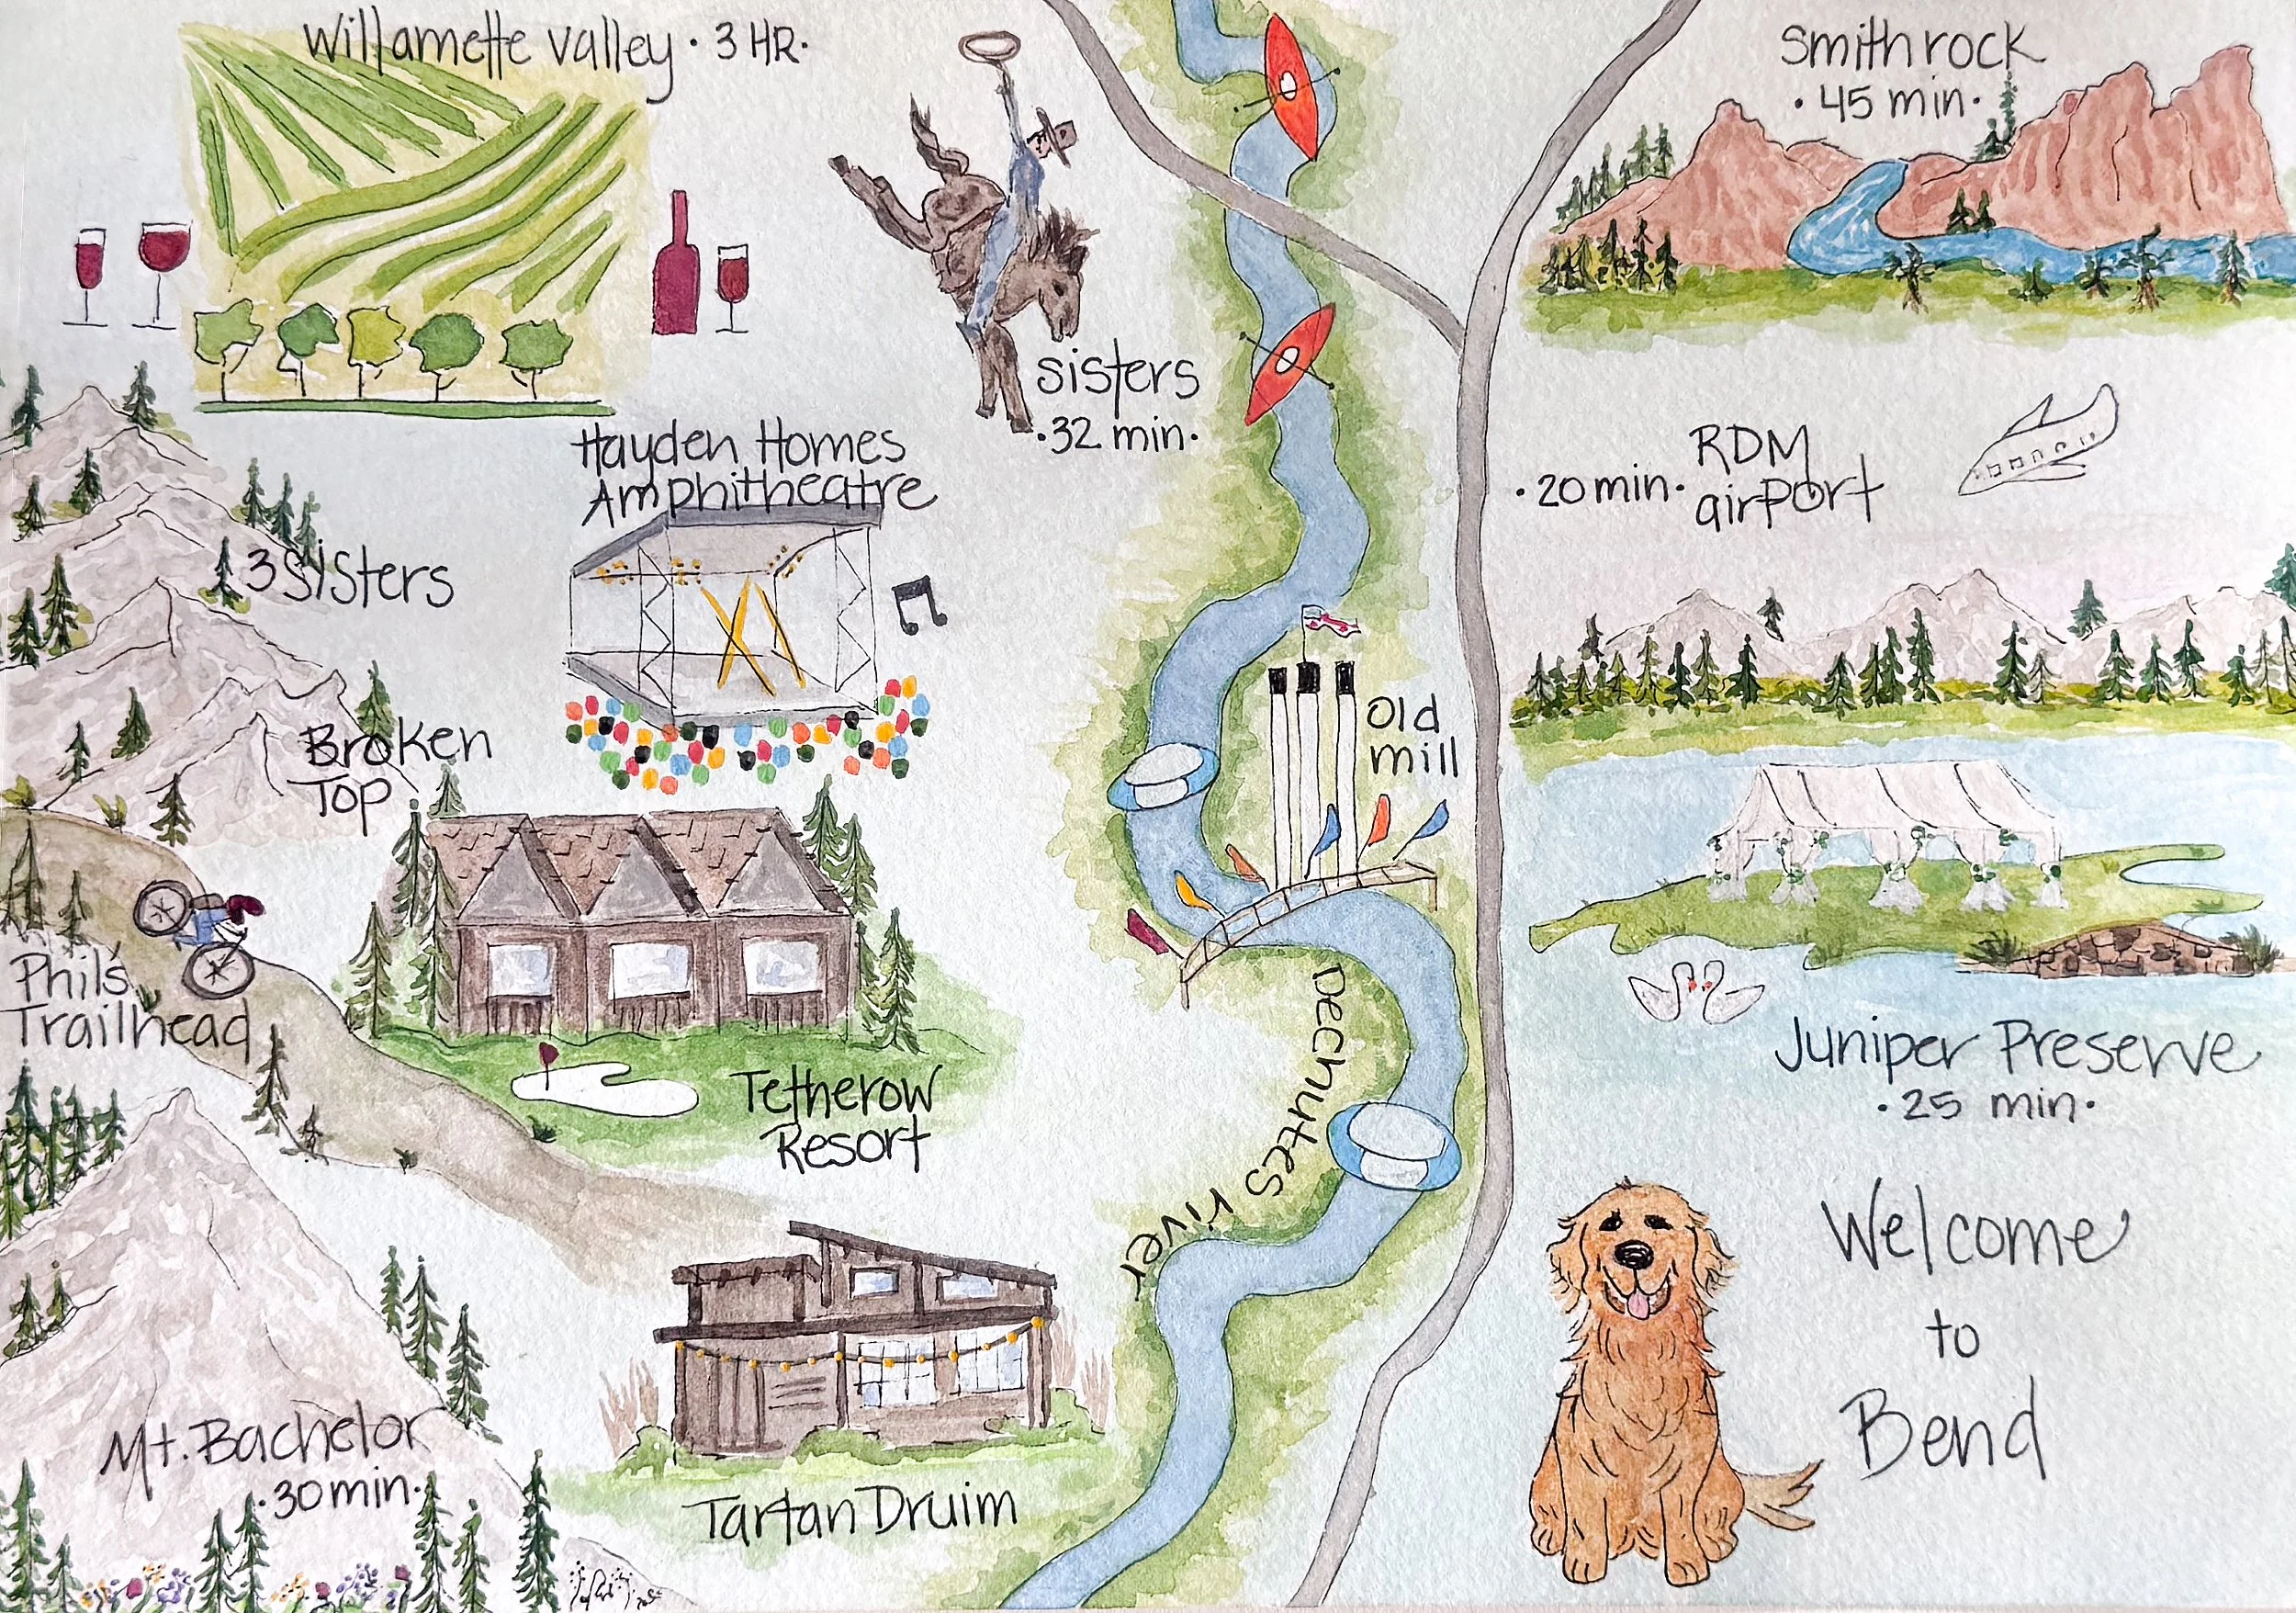 Willamette Valley · 3 HR ·
Smith rock
· 45 min ·
Sisters
· 32 min ·
Hayden Homes
Amphitheatre
RDM
· 20 min · airport
3 Sisters
Broken
Top
Old
mill
Phil's
Trailhead
Dechutes river
Tetherow
Resort
Juniper Preserve
· 25 min ·
Welcome
to
Bend
Mt. Bachelor
· 30 min ·
Tartan Druim